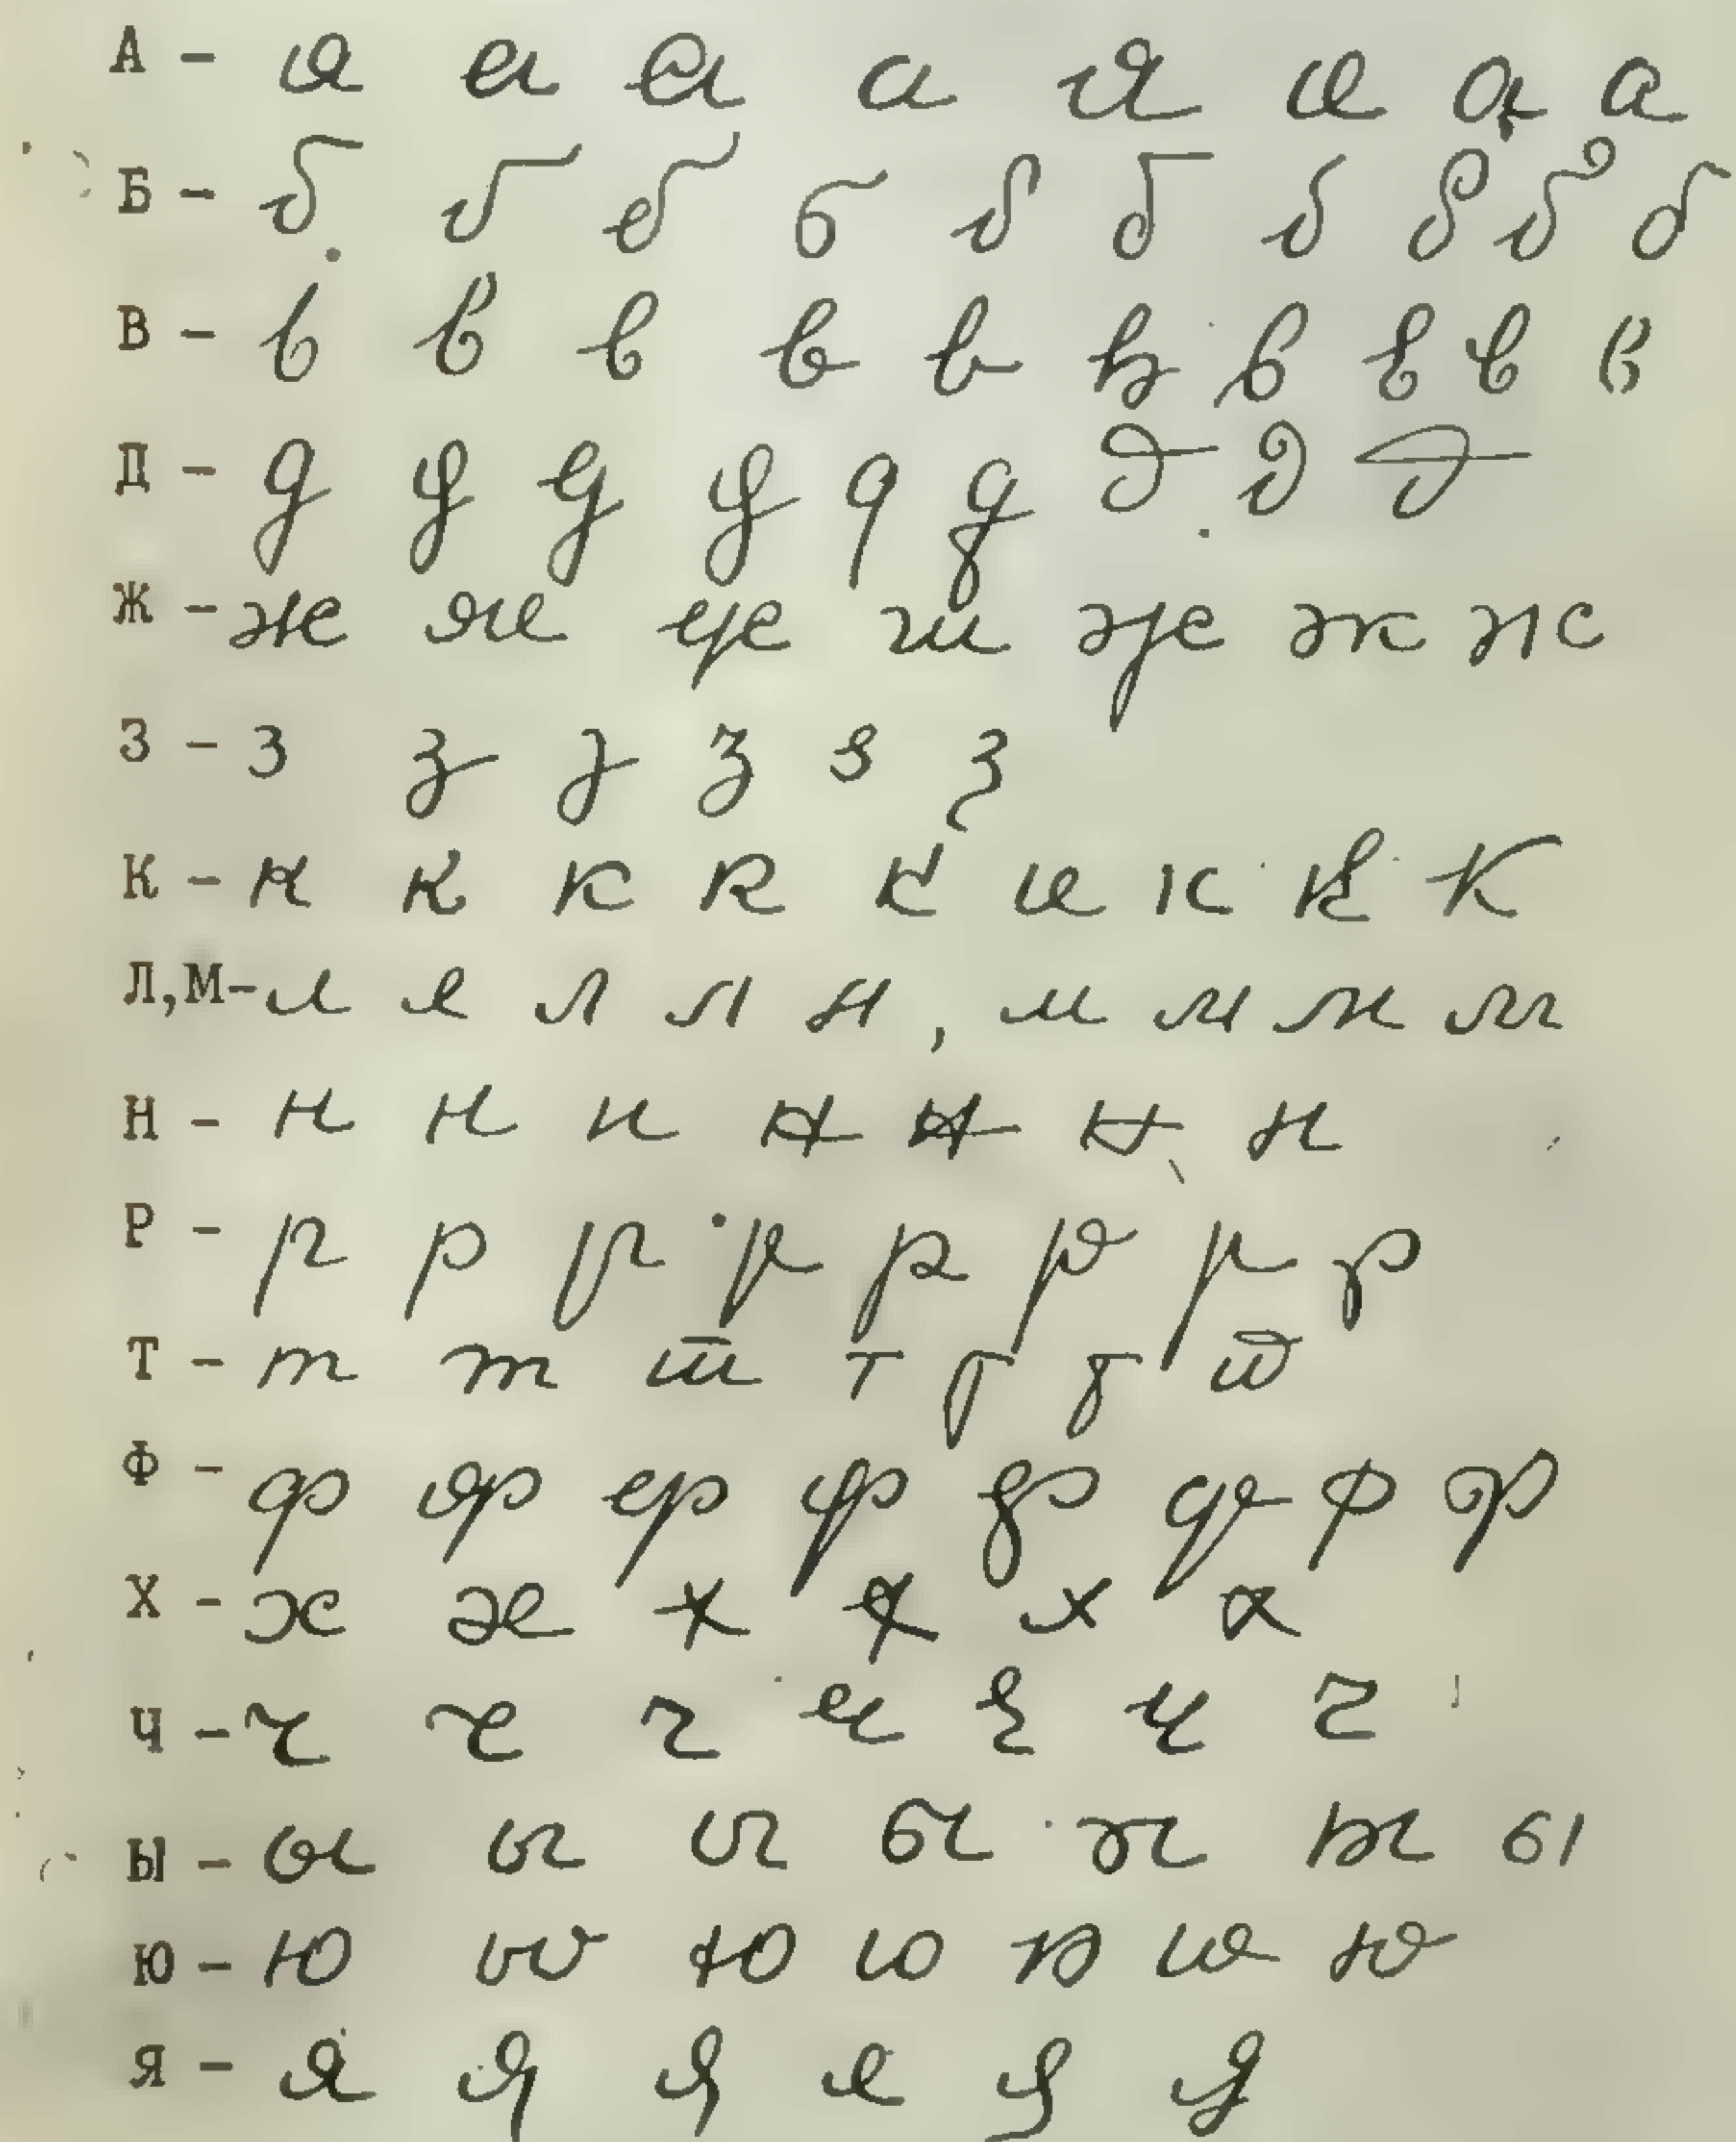 А - а а а а а а а а
Б - б б б б б б б б б б
В - в в в в в в в в в в
Д - д д д д д д д д д
Ж - ж ж ж ж ж ж ж
З - з з з з з з
К - к к к к к к к к к
Л,М - л л л л л , м м м м
Н - н н н н н н н
Р - р р р р р р р р
Т - т т т т т т т
Ф - ф ф ф ф ф ф ф ф
Х - х х х х х х
Ч - ч ч ч ч ч ч ч
Ы - ы ы ы ы ы ы ы
Ю - ю ю ю ю ю ю ю
Я - я я я я я я